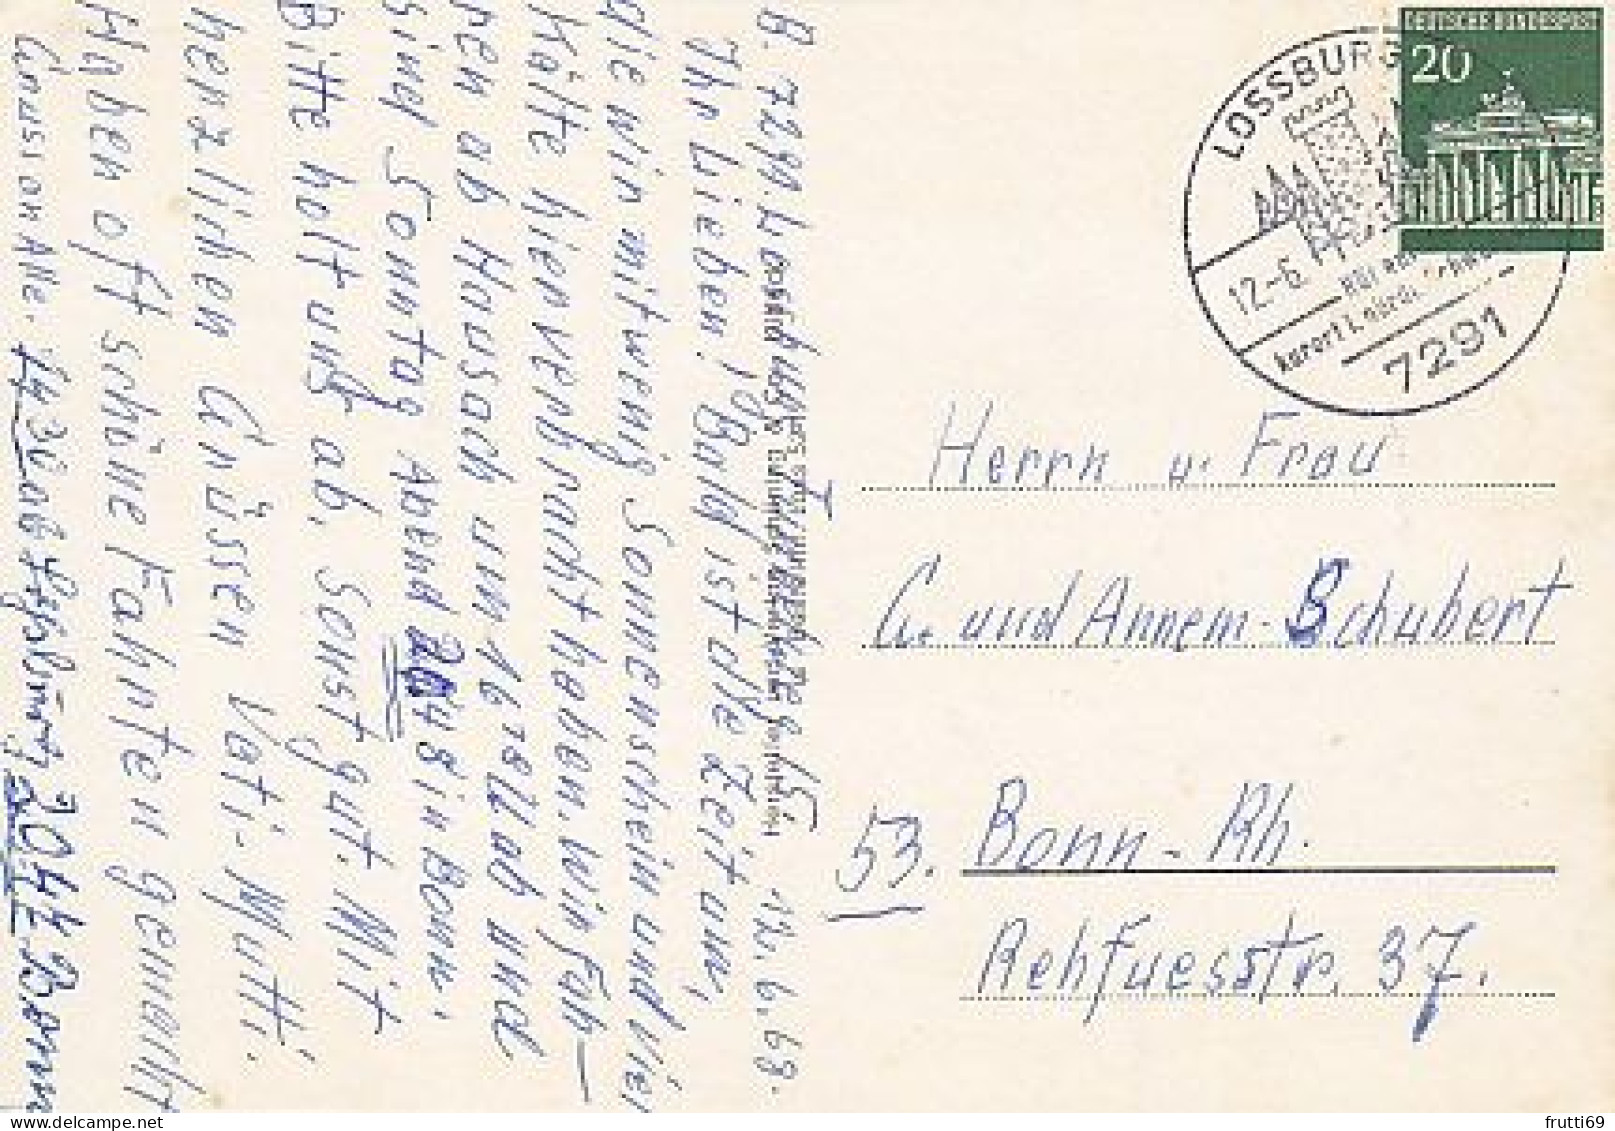 B. 7291 Lossburg 12.6.69.
Ihr Lieben! Bald ist die Zeit um,
die wir mit wenig Sonnenschein und viel
Kälte hier verbracht haben. Wir fah-
ren ab Hausach um 16 ab und
sind Sonntag Abend in Bonn.
Bitte holt uns ab, sonst gut. Mit
herzlichen Grüssen Vati-Mutti.
Haben oft schöne Fahrten gemacht
Gruss an Alle. ab 2044 Bonn
DEUTSCHE BUNDESPOST
20
LOSSBURG
12.-6.
Kurort
7291
Herrn u. Frau
G. und Annem. Schubert
53. Bonn-Rh.
Rehfuesstr. 37.
frutti69